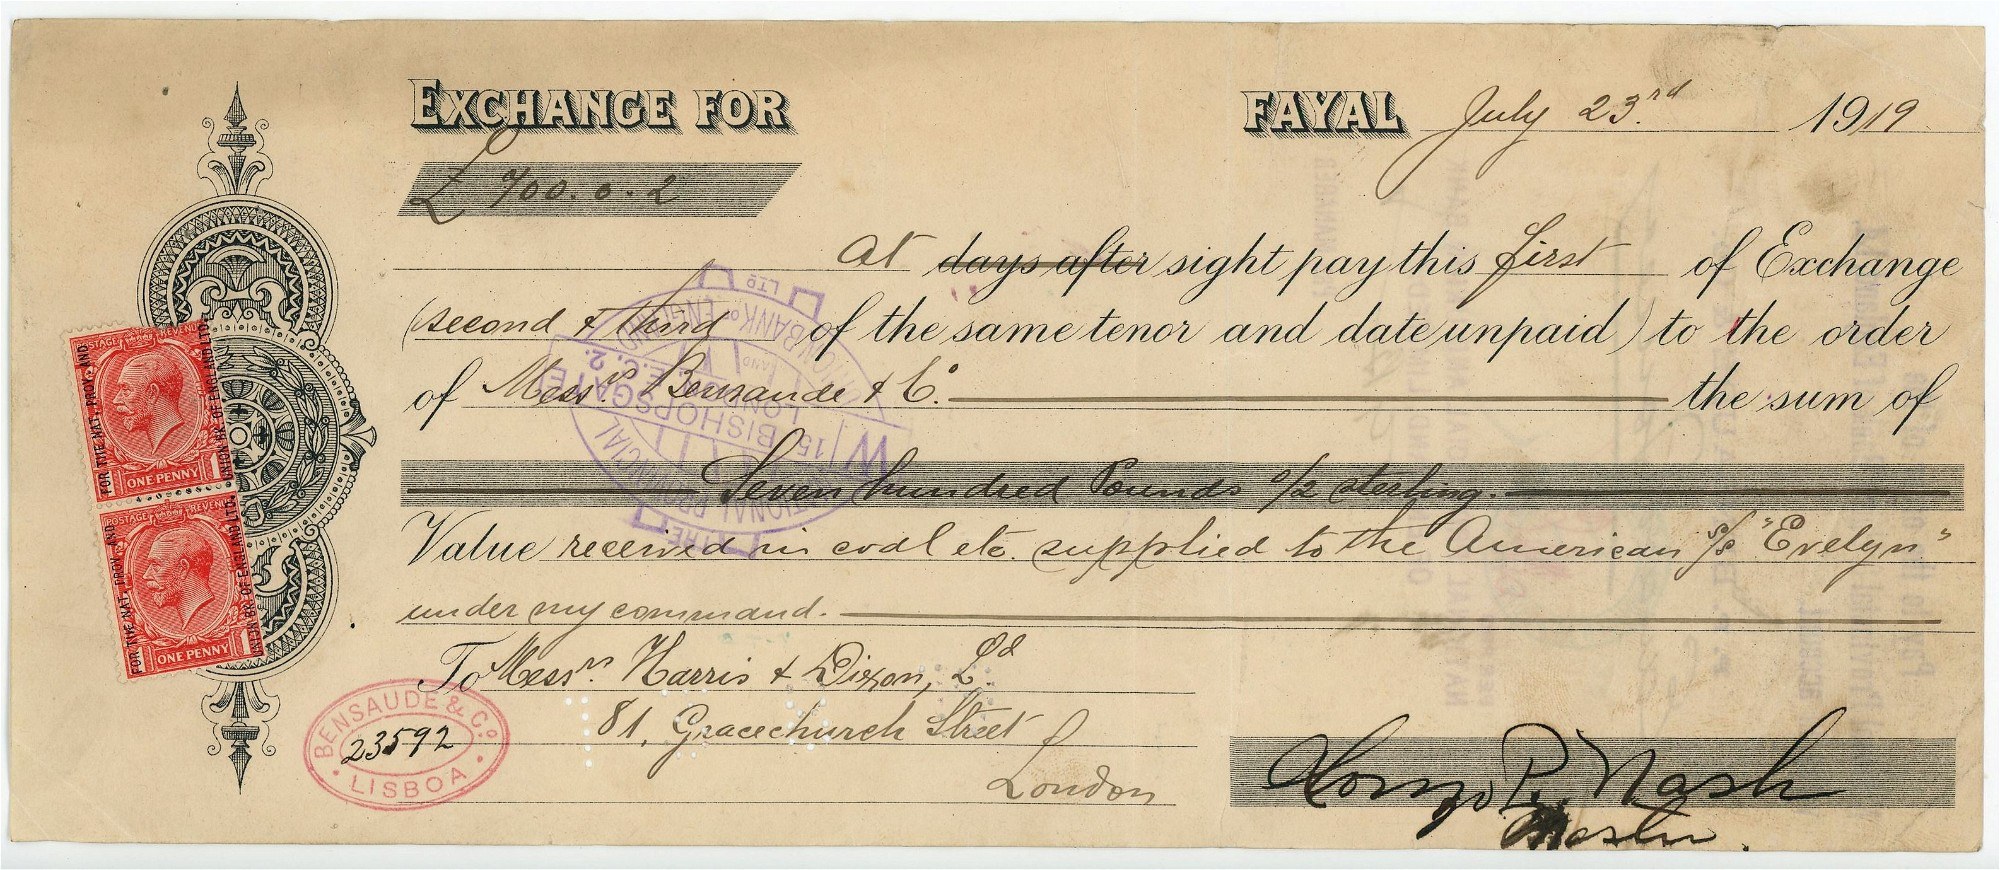 EXCHANGE FOR FAYAL July 23rd 1919
£ 700.0.2
At days after sight pay this first of Exchange
(second & third of the same tenor and date unpaid) to the order
of Messrs Bensaude & Co. the sum of
Seven hundred Pounds 0/2 sterling.
Value received in coal etc. supplied to the American s/s "Evelyn"
under my command.
To Messrs. Harris & Dixon, Ld
81, Gracechurch Street
London
P. Nash
Master.
BENSAUDE & Co
23592
LISBOA
POSTAGE REVENUE
ONE PENNY 1
FOR THE NAT. PROV. AND
UNION BK OF ENGLAND LTD.
POSTAGE REVENUE
ONE PENNY 1
FOR THE NAT. PROV. AND
UNION BK OF ENGLAND LTD.
THE NATIONAL PROVINCIAL
UNION BANK OF ENGLAND LTD
15 BISHOPSGATE
LONDON E.C.2.